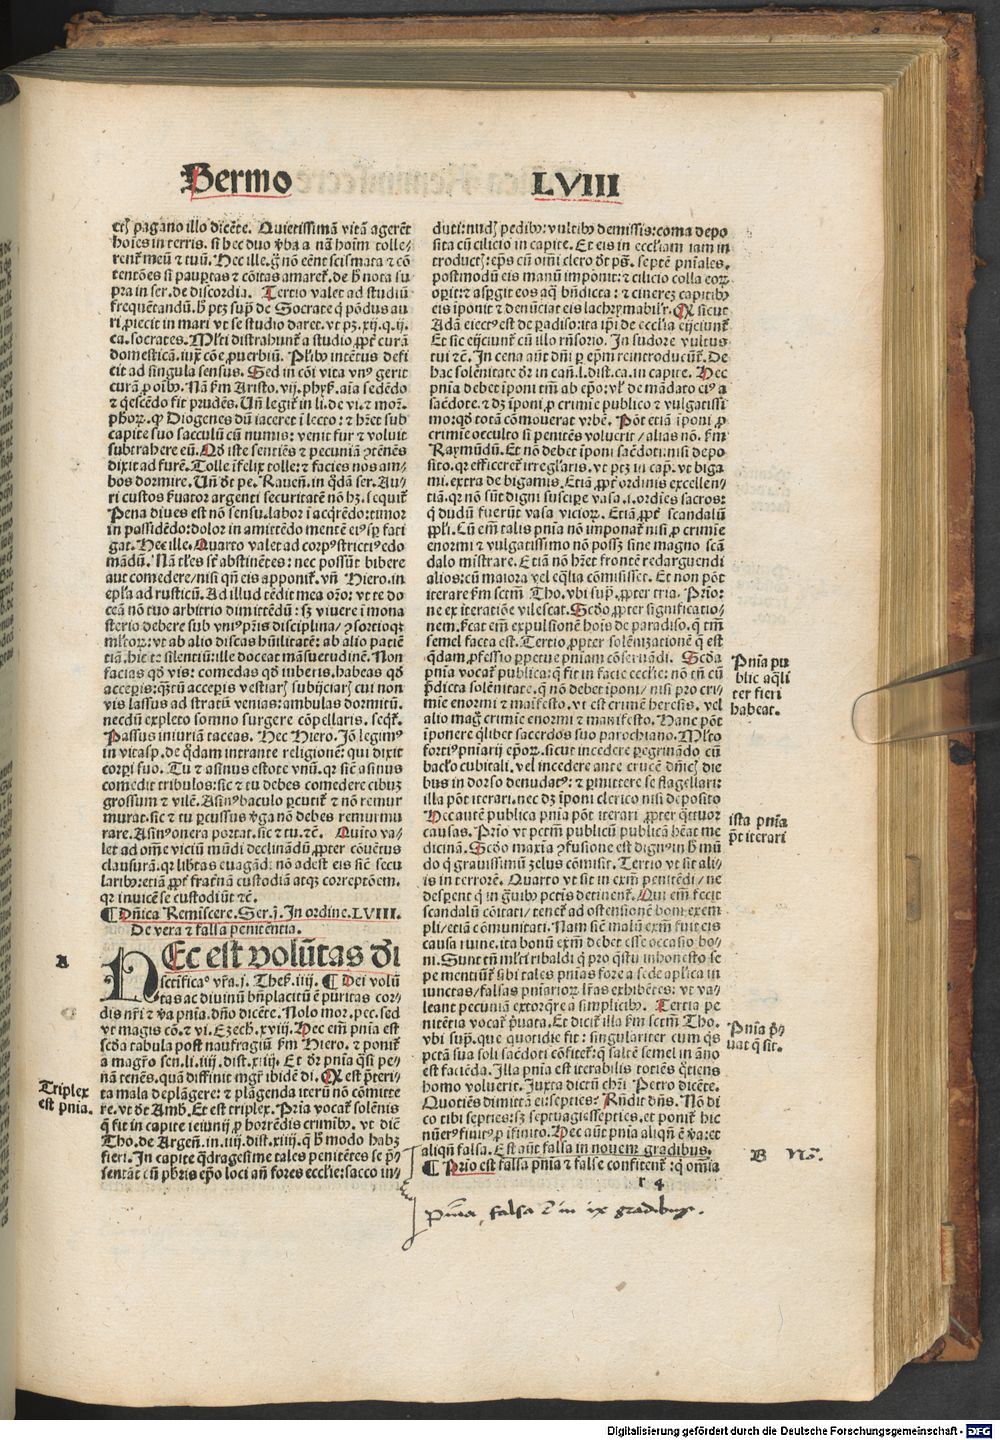 Sermo LVIII
etiā pagano illo dicēte. Quietissimā vitā agerēt
hoīes in terris. si hec duo v̄ba a nā hoīm tolle-
rent͛ meū ⁊ tuū. Hec ille. g̊ nō eēnt scismata ⁊ cō
tentōes si paup̲tas ⁊ cōitas amaret͛. de h̄ nota su
pra in ser. de discordia. Tertio valet ad studiū
frequētandū. h̄ ptꝫ sup̄ de Socrate q̇ pōdus au
ri p̲iecit in mari vt se studio daret. vt pꝫ. xij. q. ij.
ca. socrates. Ml̄ti distrahunt͛ a studio ꝓpt͛ curā
domesticā. iux̄ cōe ꝓuerbiū. Plrib⁹ intētus defi
cit ad singula sensus. Sed in cōi vita vn⁹ gerit
curā ꝓ oīb⁹. Nā fm Aristo. vij. phyẜ. aīa sedēdo
⁊ q̇escēdo fit prudēs. Un̄ legit͛ in li. de vi. ⁊ mor̄.
ph̄oꝝ. ꝙ Diogenes dū iaceret ī lecto: ⁊ hr̄et sub
capite suo sacculū cū numis: venit fur ⁊ voluit
subtrahere eū. Qḋ iste sentiēs ⁊ pecuniā ↄ̨tēnēs
dixit ad furē. Tolle īfelix tolle: ⁊ facies nos am-
bos dormire. Un̄ ḋt pe. Rauen̄. in q̇dā ser. Au-
ri custos ẜuator argenti securitatē nō hꝫ. seq̇tur
Pena diues est nō sensu. labor ī acq̇rēdo: timor
in possidēdo: dolor in amittēdo mentē ei⁹ sp̲ fati
gat. Hec ille. Quarto valet ad corp⁹ strictī⁹ edo
mādū. Nā tl̄es st̄ abstinētes: nec possūt bibere
aut comedere / nisi qn̄ eis apponit͛. vn̄ Hiero. in
epl̄a ad rusticū. Ad illud tēdit mea oro: vt te do
ceā nō tuo arbitrio dimittēdū: sꝫ viuere ī mona
sterio debere sub vni⁹ pr̄is disciplina / ↄ̨sortioqꝫ
ml̄toꝝ: vt ab alio discas hūilitatē: ab alio patiē
tiā. hic te silentiū: ille doceat māsuetudinē. Non
facias qḋ vis: comedas qḋ iuberis. habeas qḋ
acceperis: q̄stū acceperis vestiari: subijciar: cui non
vis lassus ad stratū venias: ambulās dormitū.
necdū expleto somno surgere cōpellaris. seqr̄.
Passus iniuriā taceas. Hec Hiero. Jō legim⁹
in vitasp̄. de q̇dam intrante religionē: qui dixit
corpi suo. Tu ⁊ asinus estote vnū. qr siē asinus
comedit tribulos: sic ⁊ tu debes comedere cibuꝫ
grossum ⁊ vilē. Asin⁹ baculo p̲cutit͛ ⁊ nō remur
murat. sic ⁊ tu p̲cussus v̄ga nō debes remurmu
rare. Asin⁹ onera portat. sic ⁊ tu. ⁊c̄. Quīto va-
let ad om̄e viciū mūdi declinādū ꝓpter cōuētus
clausurā. qr lib̄tas euagādi nō adest eis siē secu
larib⁹: etiā ꝓpt͛ frat͛nā custodiā atqꝫ correptōem.
qr inuicē se custodiūt ⁊c̄.
¶ Dn̄ica Remīscere. Ser. j. In ordine. LVIII.
De vera ⁊ falsa penitentia.
A
HEc est volūtas dei
sctificatio vr̄a. j. Theẜ. iiij. ¶ Dei volū
tas ac diuinū bn̄placitū ē puritas cor-
dis nr̄i ⁊ v̄a pnīa. dn̄o dicēte. Nolo mor. pec. sed
vt magis cō. ⁊ vi. Ezech. xviij. Hec em̄ pnīa est
scḋa tabula post naufragiū fm Hiero. ⁊ ponit͛
a magr̄o sen. li. iiij. dist. xiiij. Et ḋr pnīa q̄si pe-
nā tenēs. quā diffinit mgr̄ ibidē di. Qꝫ est p̄teri-
ta mala deplāgere: ⁊ plāgenda iterū nō cōmitte
re. vt ḋt Amb. Et est triplex. Pria vocat͛ solēnis
q̄ fit in capite ieiunij ꝓ horrēdis crimīb⁹. vt diē
Tho. de Argeñ. in. iiij. dist. xiiij. q̄ h̄ modo habꝫ
fieri. In capite q̇dragesime tales penitētes se p̄-
sentāt cū pb̄ris ep̄o loci an̄ fores ecclīe: sacco in-
Triplex
est pnīa.
duti: nudꝭ pedib⁹: vultib⁹ demissis: coma depo
sita cū cilicio in capite. Et eis in eccl̄iam iam in
troductꝭ: ep̄s cū om̄i clero ḋt ps̄. septē pnīales.
postmodū eis manū impōit: ⁊ cilicio colla eoꝝ
operit: ⁊ asp̲git eos aq̄ bn̄dicta: ⁊ cinereꝫ capitib⁹
eis īponit ⁊ denūciat eis lachrymabilr̄. Qꝫ sicut
Adā eiect⁹ est de p̲adiso: ita ip̄i de ecclīa eijciunt͛
Et sic eijciunt͛ cū illo rn̄sorio. In sudore vultus
tui ⁊c̄. In cena aut dn̄i p̲ ep̄m reintroducūt͛. De
hac solēnitate ḋr in cañ. l. dist. ca. in capite. Hec
pnīa debet īponi tm̄ ab ep̄o: vl̄ de mādato ei⁹ a
sacēdote. ⁊ dꝫ īponi ꝓ crimīe publico ⁊ vulgatissi
mo: qḋ totā cōmouerat vrbē. Pōt etiā īponi ꝓ
crimīe occulto si penitēs voluerit / alias nō. fm
Raymūdū. Et nō debet īponi sacēdoti: nisi depo
sito. qr efficeret͛ irregl̄aris. vt ptꝫ in cap̄. vt biga
mi. extra de bigamis. Etiā ꝓpt͛ ordinis excellen-
tiā. qr nō sūt digni suscipe vasa. i. ordīes sacros:
q̇ dudū fuerūt vasa vicioꝝ. Etiā ꝓpt͛ scandalū
ppl̄i. Cū em̄ talis pnīa nō imponat͛ nisi ꝓ crimīe
enormi ⁊ vulgatissimo nō possꝫ sine magno scā
dalo mīstrare. Et iā nō hr̄et frontē redarguendi
alios: cū maiora vel eq̄lia cōmisisset. Et non pōt
iterare fm sctm̄ Tho. vbi sup̄. ꝓpter tria. Prīo:
ne ex iteratiōe vilescat. Scḋo ꝓpter significatio-
nem. ẜcat em̄ expulsionē hoīs de paradiso. q̄ tm̄
semel facta est. Tertio ꝓpter solēnizationē q̄ est
q̇dam ꝓfessio p̲petue pnīam cōseruādi. Scḋa
pnīa vocat͛ publica: q̄ fit in facie ecclīe: nō tn̄ cū
p̄dicta solēnitate. q̄ nō debet īponi / nisi ꝓ cri-
mīe enormi ⁊ maīfesto. vt est crimē heresis. vel
alio mag͛ crimīe enormi ⁊ manifesto. Hanc pōt
īponere q̇libet sacerdos suo parochiano. Ml̄to
forti⁹ pniarij ep̄oꝝ. sicut incedere peregrinādo cū
bac̄lo cubitali. vel incedere ante crucē dn̄icꝭ die
bus in dorso denudat⁹: ⁊ p̲mittere se flagellari:
illa pōt iterari. nec dꝫ īponi clerico nisi deposito
Hec autē publica pnīa pōt iterari ꝓpter q̇ttuor
causas. Prīo vt pctm̄ publicū publicā hēat me
dicinā. Scḋo maxīa ↄ̨fusione est dign⁹ in h̄ mū
do q̇ grauissimū zelus cōmisit. Tertio vt sit ali-
is in terrorē. Quarto vt sit in exm̄ penitēdi / ne
desp̲ent q̇ in g̊uib⁹ pctis detinent͛. Qui em̄ fecit
scandalū cōitati / tenet͛ ad ostensionē boni exem
pli / etiā cōmunitati. Nam siē malū exm̄ fuit eis
causa ruine. ita bonū exm̄ debet esse occasio bo-
ni. Sunt tn̄ ml̄ti ribaldi q̇ pro q̄stu inhonesto se
pe mentiūt͛ sibi tales pnīas fore a sede aplica in
iunctas / falsas pniarioꝝ lr̄as exhibētes: vt va-
leant pecuniā extorq̄re a simplicib⁹. Tertia pe
nitētia vocat͛ p̄uata. Et dicit͛ illa fm sctm̄ Tho.
vbi sup̄. que quotidie fit: singulariter cum q̇s
pctā sua soli sacēdoti cōfitet͛: q̄ saltē semel in āno
est faciēda. Illa pnīa est iterabilis totiēs q̇tiens
homo voluerit. Juxta dictū chr̄i Petro dicēte.
Quotiēs dimittā ei: septies? Rn̄dit dn̄s. Nō di
co tibi septies: sꝫ septuagiessepties. et ponit͛ hic
nūer⁹ finit⁹ ꝓ īfinito. Hec aūt pnīa aliqn̄ ē v̄a: et
aliqn̄ falsa. Est aūt falsa in nouem gradibus.
¶ Prīo est falsa pnīa ⁊ false confitent͛: q̇ om̄ia
Pnīa pu
blic aq̄li
ter fieri
habeat.
ista pnīa
p̄t iterari
Pnīa p̄i-
uat q̄ sit.
B No.
r 4
pn̄ia falsa ē in ix gradibus.
Digitalisierung gefördert durch die Deutsche Forschungsgemeinschaft - DFG